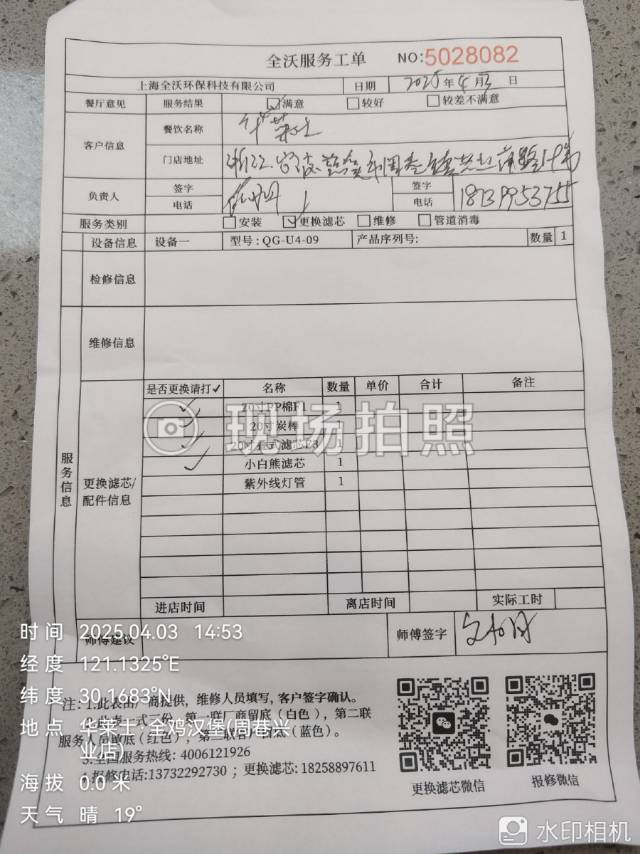 全沃服务工单 NO:5028082
上海全沃环保科技有限公司 日期 2025年4月3日
餐厅意见 服务结果 满意 较好 较差不满意
客户信息 餐饮名称 华莱士
门店地址 浙江
负责人 签字 签字
电话 电话 18739953755
服务类别 安装 更换滤芯 维修 管道消毒
设备信息 设备一 型号: QG-U4-09 产品序列号: 数量 1
检修信息
维修信息
服务信息
是否更换请打✓ 名称 数量 单价 合计 备注
✓ 20寸PP棉F1 1
✓ 20寸炭棒
✓ 20寸 式滤芯 1
✓ 小白熊滤芯 1
紫外线灯管 1
更换滤芯/
配件信息
现场拍照
进店时间 离店时间 实际工时
师傅建议 师傅签字
注: 1.此表由厂商提供, 维修人员填写, 客户签字确认。
一式三份, 第一联厂商留底(白色), 第二联
服务人员留底(红色), 第三联 (蓝色)。
3.全国服务热线: 4006121926
4.报修电话:13732292730 ; 更换滤芯: 18258897611
更换滤芯微信 报修微信
时间 2025.04.03 14:53
经度 121.1325°E
纬度 30.1683°N
地点 华莱士·全鸡汉堡(周巷兴
业店)
海拔 0.0 米
天气 晴 19°
水印相机